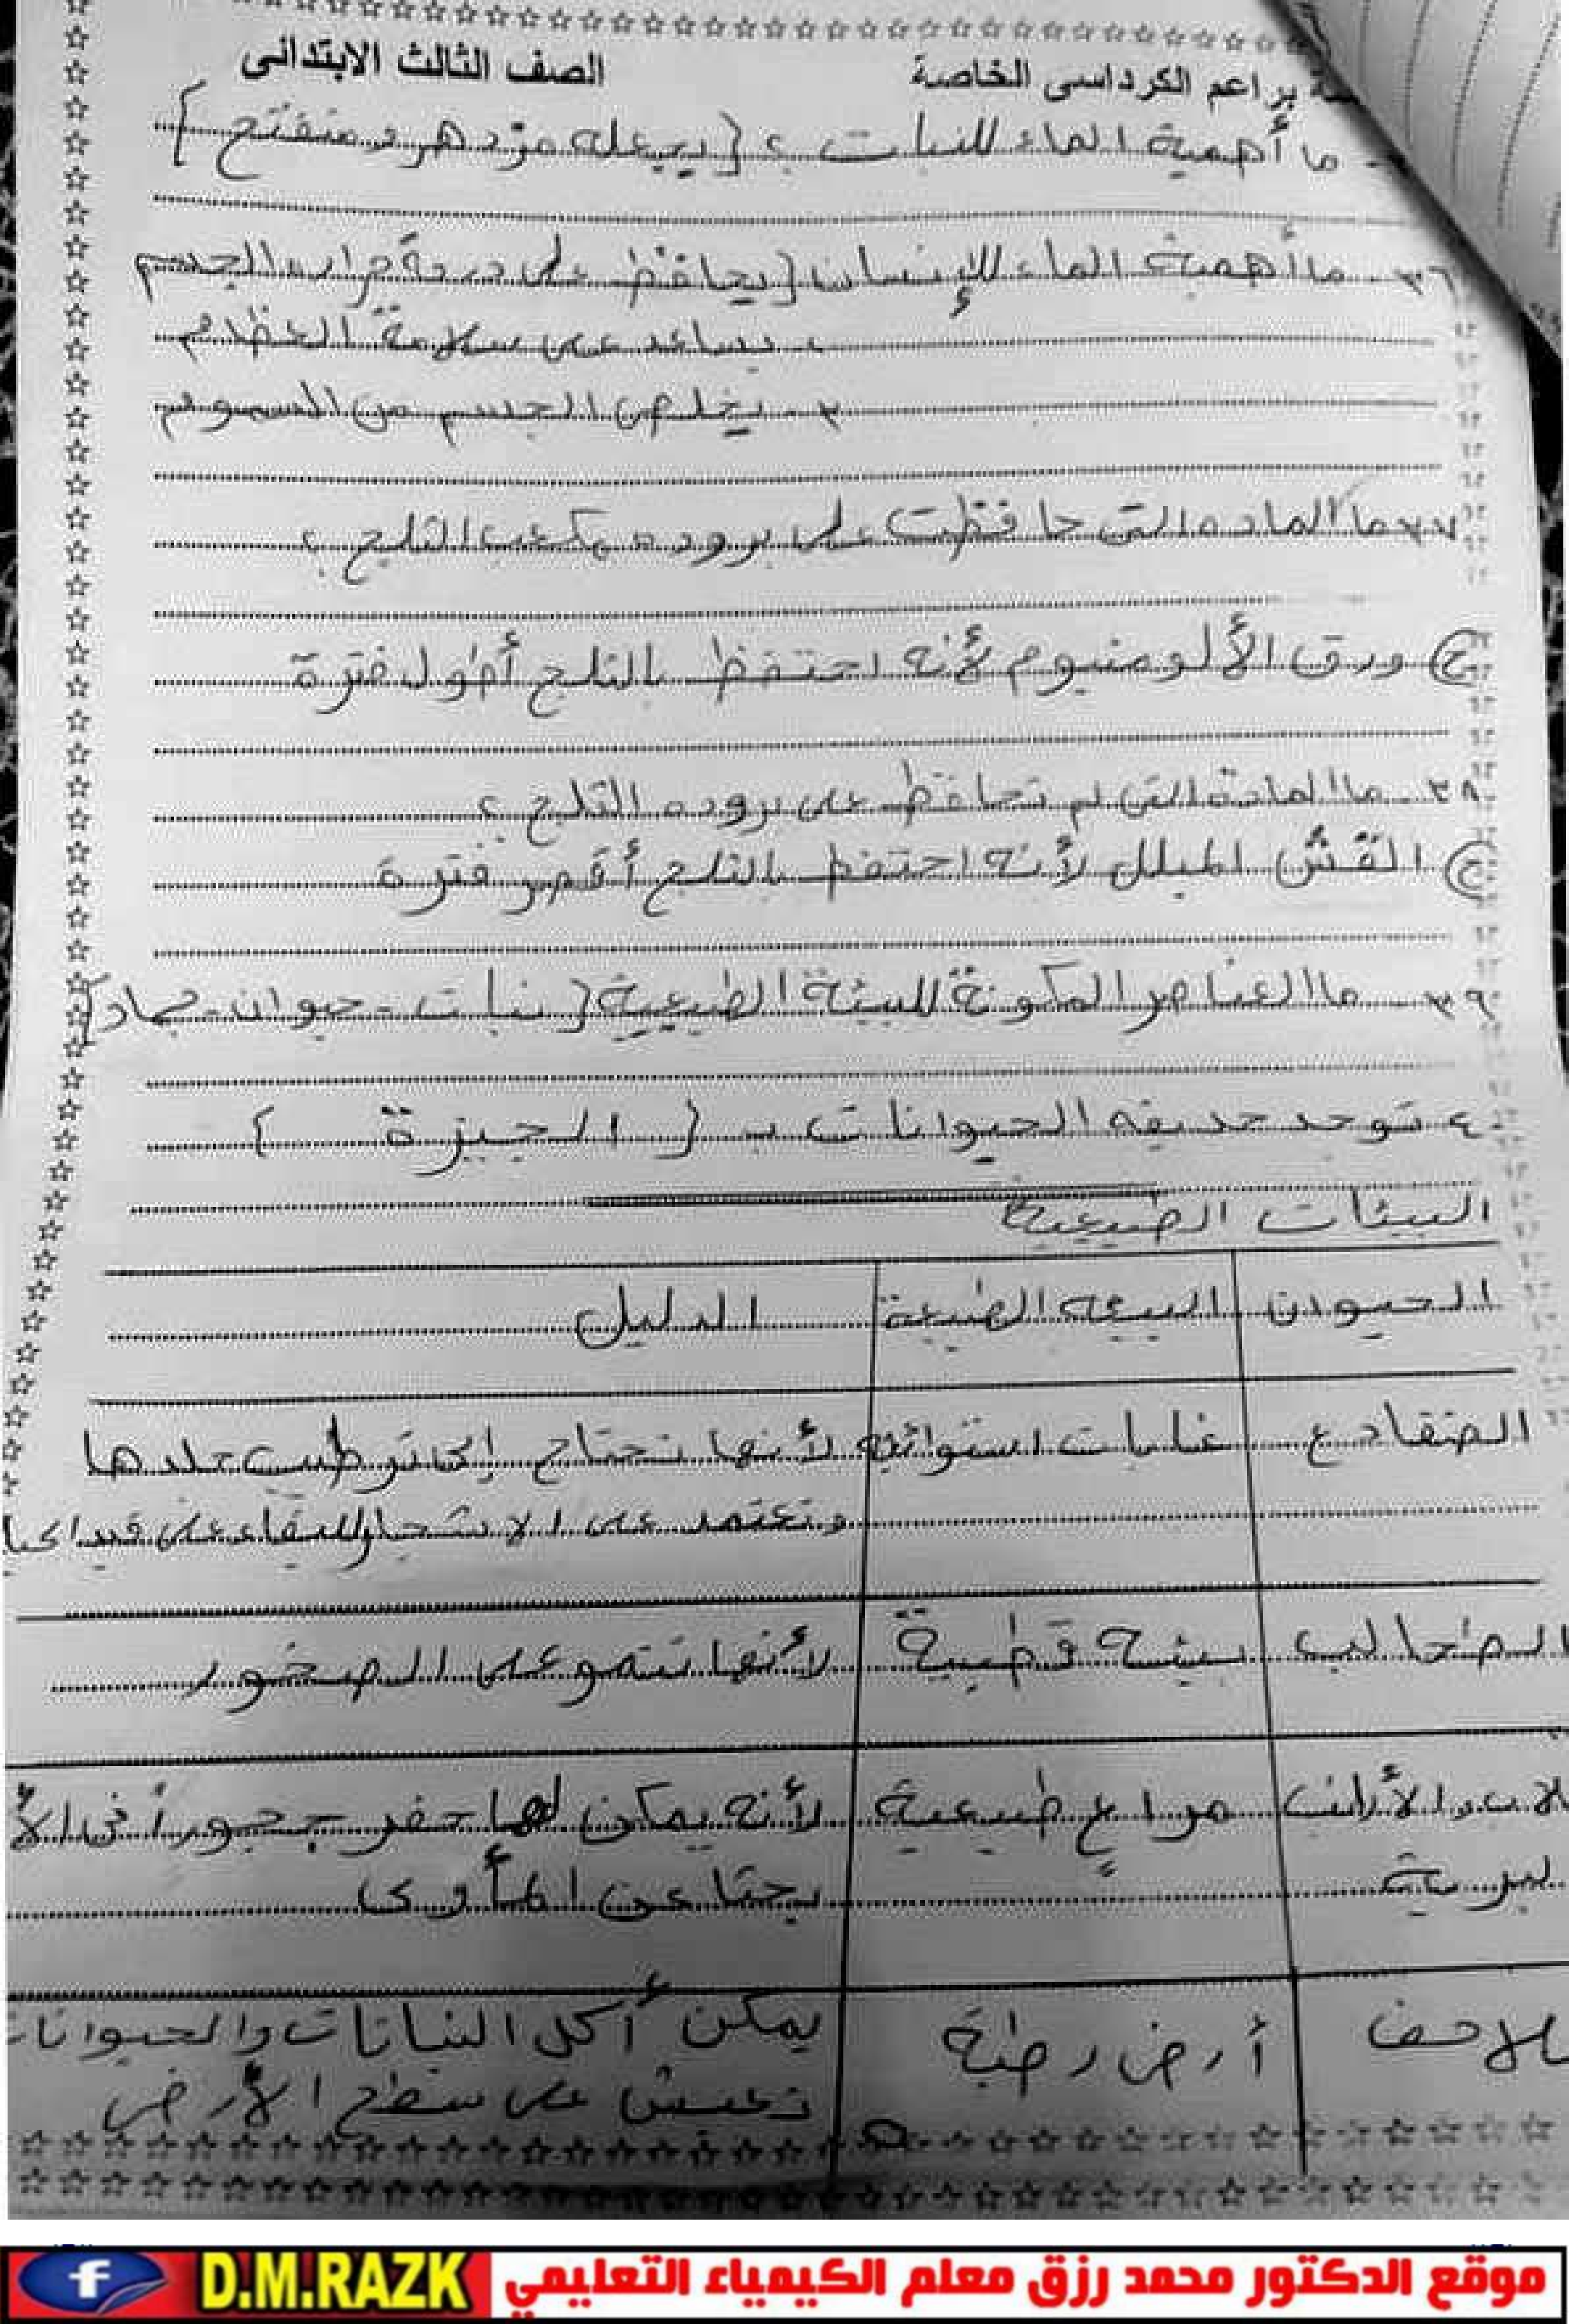 براعم الكرداسى الخاصة
الصف الثالث الابتدائى
ما أهمية الماء للنبات ؟ { يجعله مزدهر و متفتح }
٣٦- ما أهمية الماء للإنسان { يحافظ على درجة حرارة الجسم
يساعد على سلامة العظام
٣- يخلص الجسم من السموم
٣٧- ما الماده التى حافظت على بروده مكعب الثلج ؟
ج ورق الألومنيوم لأنه احتفظ بالثلج أطول فترة
٣٨- ما المادة التى لم تحافظ على بروده الثلج ؟
ج القش المبلل لأنه احتفظ بالثلج أقصر فترة
٣٩- ما العناصر المكونة للبيئة الطبيعية { نبات - حيوان - جماد }
٤٠- توجد حديقه الحيوانات بـ { الجيزة }
البيئات الطبيعية
الحيوان البيئه الطبيعة الدليل
الضفادع غابات استوائيه لأنها تحتاج إلى ترطيب جلدها
وتعتمد على الاشجار للبقاء على قيد
الطحالب بيئه قطبية لأنها تنمو على الصخور
والأرانب مراعٍ طبيعية لأنه يمكن لها حفر جحوراً فى
لبرية بحثا عن المأوى
أرض رطبة يمكن أكل النباتات والحيوانات
تعيش على سطح الأرض
موقع الدكتور محمد رزق معلم الكيمياء التعليمي
D.M.RAZK
f